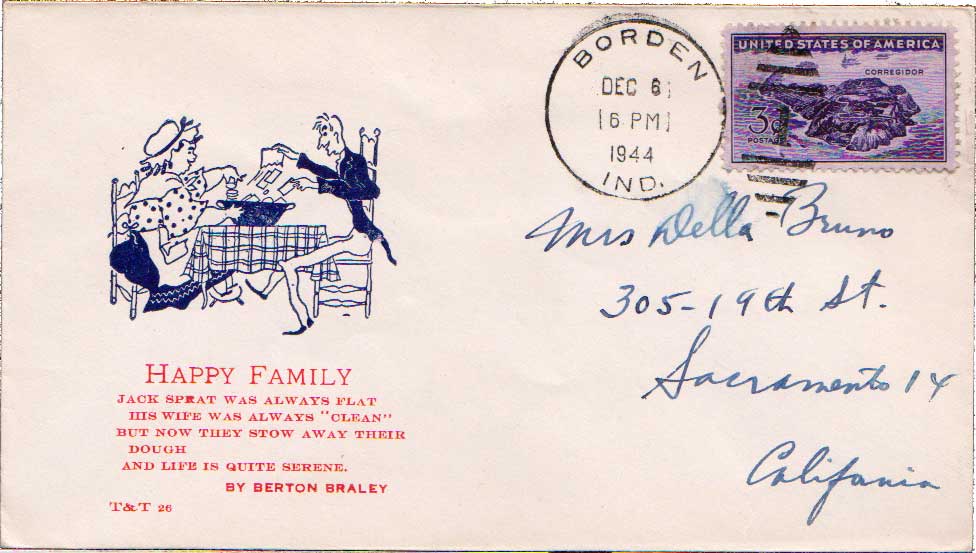 UNITED STATES OF AMERICA
CORREGIDOR
3¢
POSTAGE
BORDEN
DEC 6
6 PM
1944
IND.
Mrs Della Bruno
305-19th St.
Sacramento 14
California
HAPPY FAMILY
JACK SPRAT WAS ALWAYS FLAT
HIS WIFE WAS ALWAYS "CLEAN"
BUT NOW THEY STOW AWAY THEIR
DOUGH
AND LIFE IS QUITE SERENE.
BY BERTON BRALEY
T&T 26